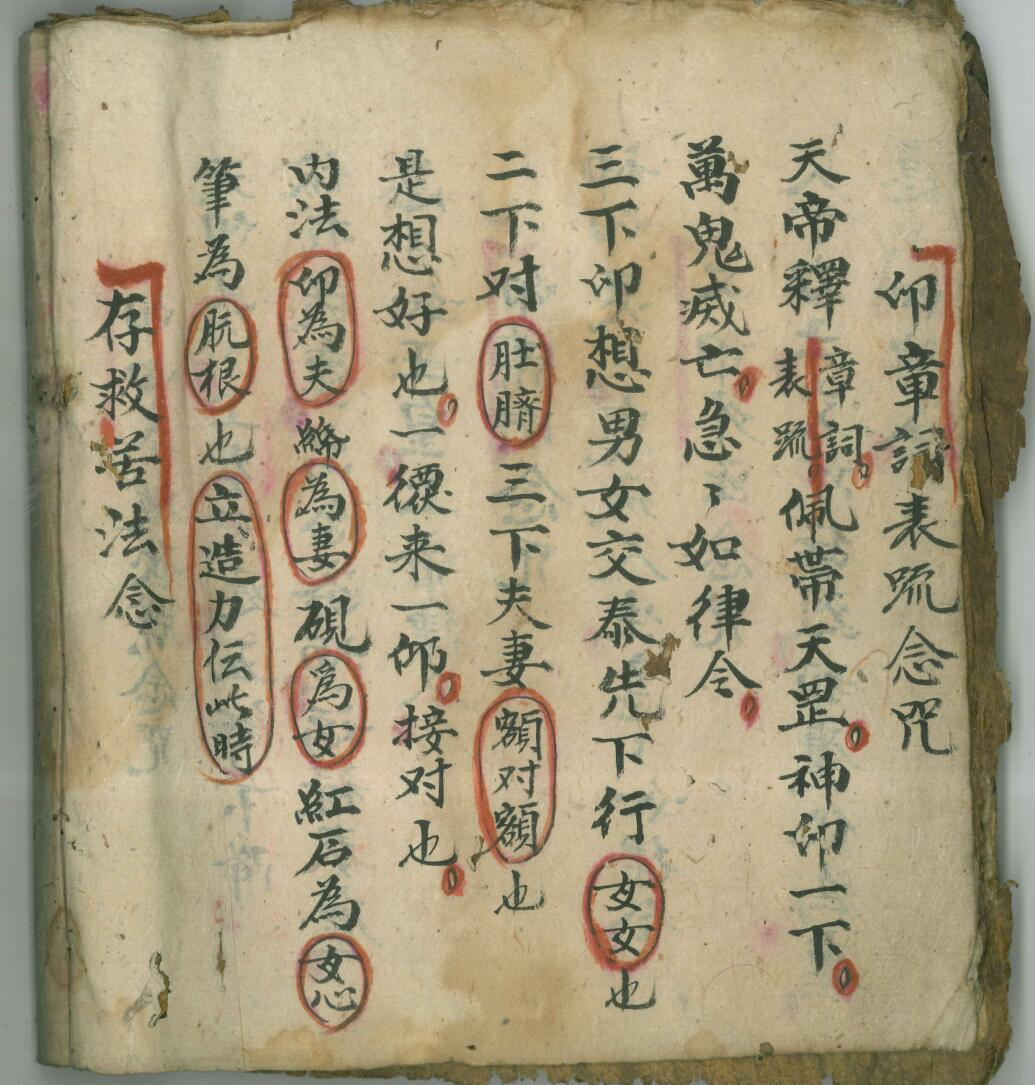 印章詞表疏念咒
天帝釋章詞表疏佩带天罡神印一下
萬鬼滅亡急々如律令
三下印想男女交泰先下行女女也
二下对肚臍三下夫妻額对額也
是想好也一還来一仰接对也
内法印為夫締為妻硯為女紅石為女心
筆為朊根也立造力伝此時
存救苦法念